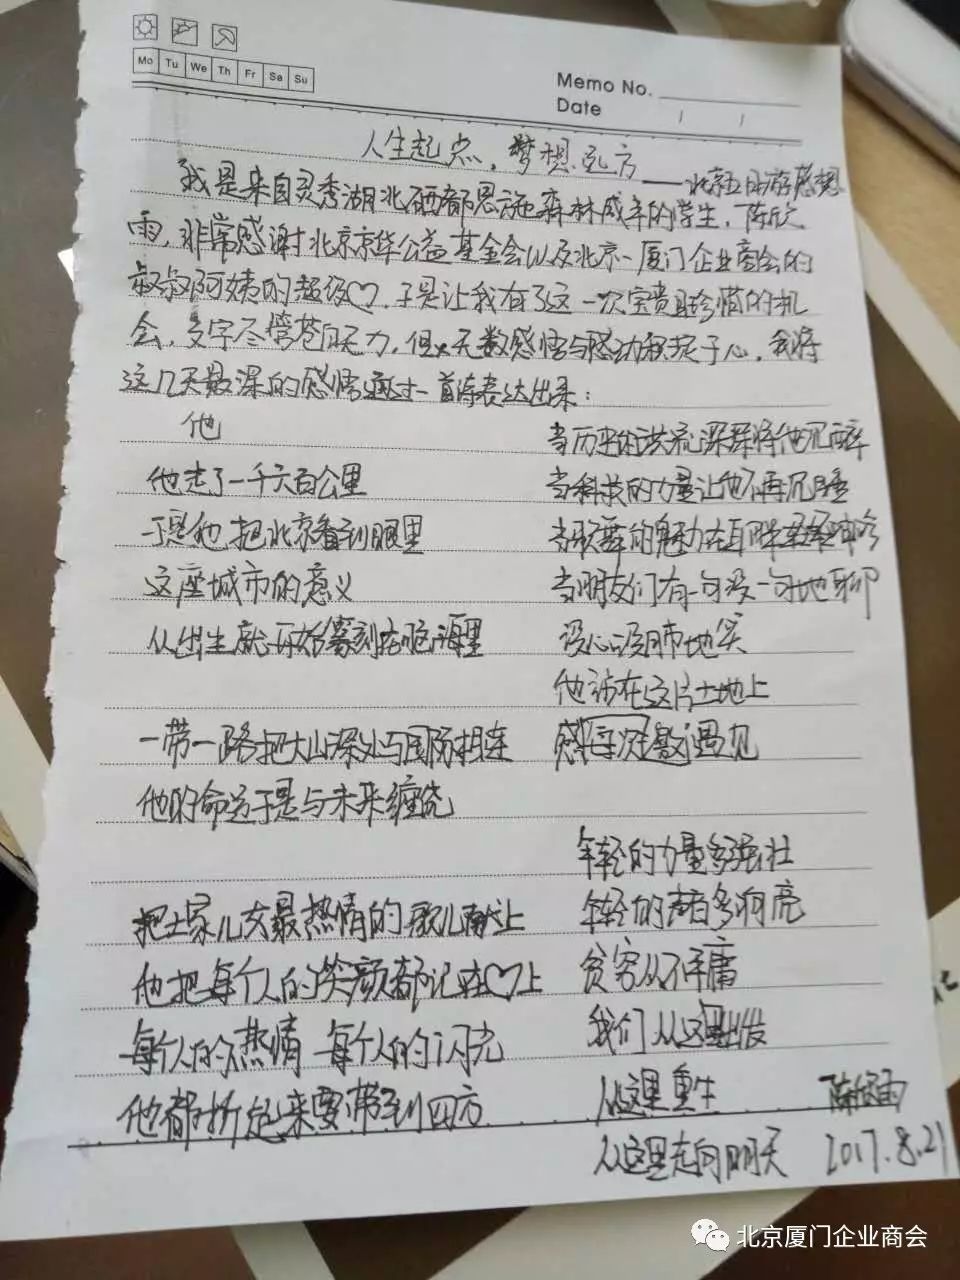 Mo Tu We Th Fr Sa Su
Memo No.
Date / /
人生起点,梦想远方——北京五日游感想
我是来自灵秀湖北硒都恩施森林成年的学生,陈欣
雨,非常感谢北京京华公益基金会以及北京厦门企业商会的
叔叔阿姨的超级♡,于是让我有了这一次宝贵且珍惜的机
会,文字尽管苍白无力,但无数感悟与感动积淀于心,我将
这几天数深的感悟通过一首诗表达出来:
他
他走了一千六百公里
于是他把北京看到眼里
这座城市的意义
从出生就开始篆刻在脑海里
一带一路把大山深处与国际相连
他的命运于是与未来缠绕
把土家儿女最热情的歌儿献上
他把每个人的笑颜都记在♡上
每个人的热情 每个人的闪光
他都折起来要带到四方
当历史的洪流深深将他沉醉
当科技的力量让他不再沉睡
当歌舞的魅力在耳畔
当朋友们有一句没一句地聊
没心没肺地笑
他站在这片土地上
感遇见
年轻的力量多强壮
年轻的声音多响亮
贫穷从不平庸
我们从这里出发
从这里重生
从这里走向明天
陈欣雨
2017.8.21
北京厦门企业商会